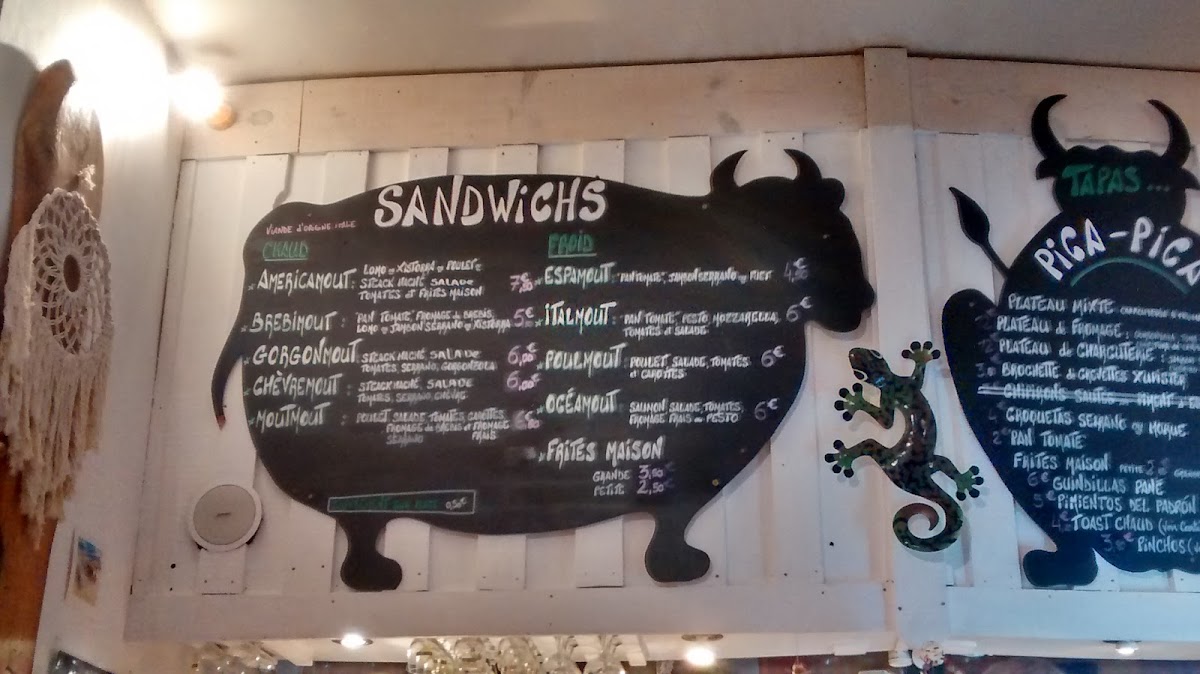 SANDWICHS
VIANDE D'ORIGINE:
CHAUD
AMERICAMOUT : LOMO ou XISTORRA ou POULET
STEACK HACHÉ, SALADE
TOMATES et FRITES MAISON
BREBIMOUT : "PAN TOMATE", FROMAGE de BREBIS,
LOMO ou JAMBON SERRANO ou XISTORRA 5€
GORGONMOUT : STEACK HACHÉ, SALADE
TOMATES, SERRANO, GORGONZOLA 6,00€
CHÈVREMOUT : STEACK HACHÉ, SALADE
TOMATES, SERRANO, CHÈVRE 6,00€
MOUTMOUT : POULET, SALADE, TOMATES, CAROTTES,
FROMAGE de BREBIS et FROMAGE
SERRANO FRAIS
0,50€
FROID
ESPAMOUT : "PAN TOMATE", JAMBON SERRANO ou
ITALMOUT : "PAN TOMATE", PESTO, MOZZARELLA,
TOMATES et SALADE 6€
POULMOUT : POULET, SALADE, TOMATES
et CAROTTES 6€
OCÉAMOUT : SAUMON, SALADE, TOMATES,
FROMAGE FRAIS ou PESTO 6€
FRITES MAISON
GRANDE 3,50€
PETITE 2,50€
TAPAS ...
PICA-PICA
PLATEAU MIXTE
PLATEAU de FROMAGE :
PLATEAU de CHARCUTERIE :
BROCHETTE de CREVETTES
CHIPIRONS SAUTÉS
CROQUETAS SERRANO ou MORUE
2€ PAN TOMATE
FRITES MAISON PETITE
6€ GUINDILLAS PANÉ
5€ PIMIENTOS DEL PADRÓN
4€ TOAST CHAUD
PINCHOS